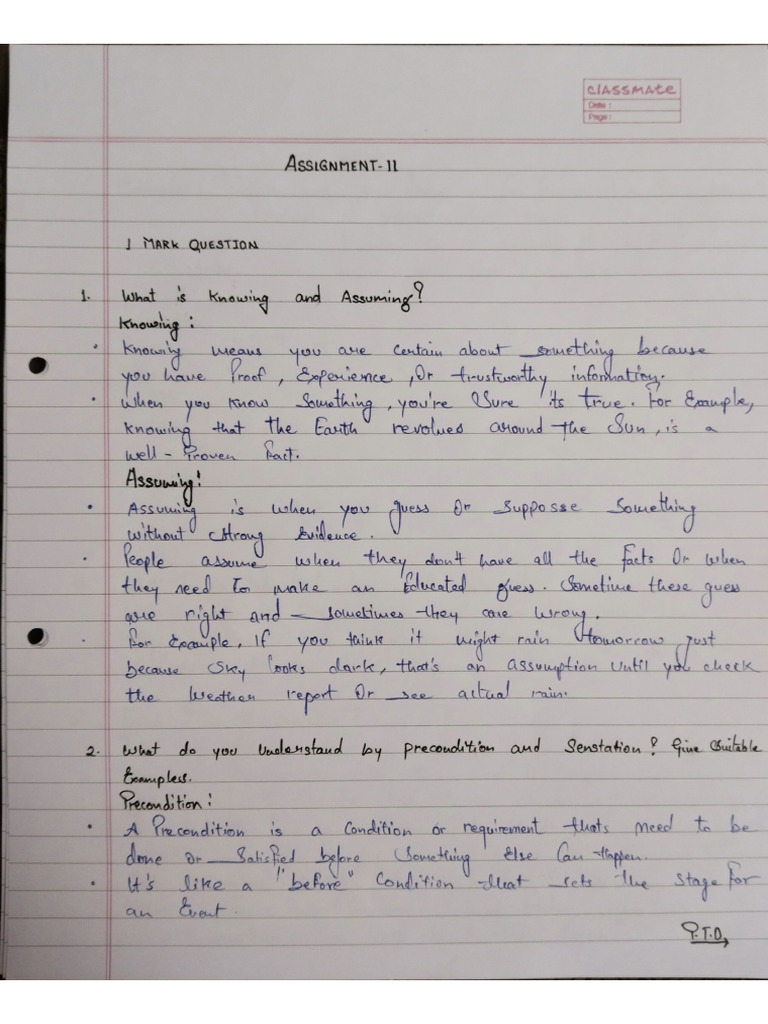 classmate
Date :
Page :
ASSIGNMENT-II
1 MARK QUESTION
1. What is Knowing and Assuming?
Knowing :
• Knowing means you are certain about something because
you have Proof, Experience, Or trustworthy information.
• When you know something, you're Sure its true. For Example,
knowing that the Earth revolves around the Sun, is a
well-Proven Fact.
Assuming!
• Assuming is when you guess Or supposse Something
Without Strong Evidence.
• People assume when they don't have all the Facts Or when
they need to make an Educated guess. Sometime these guess
are right and sometimes they are Wrong.
• For Example, If you think it might rain tomorrow just
because Sky looks dark, that's an assumption Until you check
the Weather report Or see actual rain.
2. What do you Understand by precondition and Senstation? Give Suitable
Examples.
Precondition :
• A Precondition is a Condition or requirement thats need to be
done Or Satisfied before Something Else Can Happen.
• It's like a "before" Condition that sets the Stage For
an Event.
P.T.O.